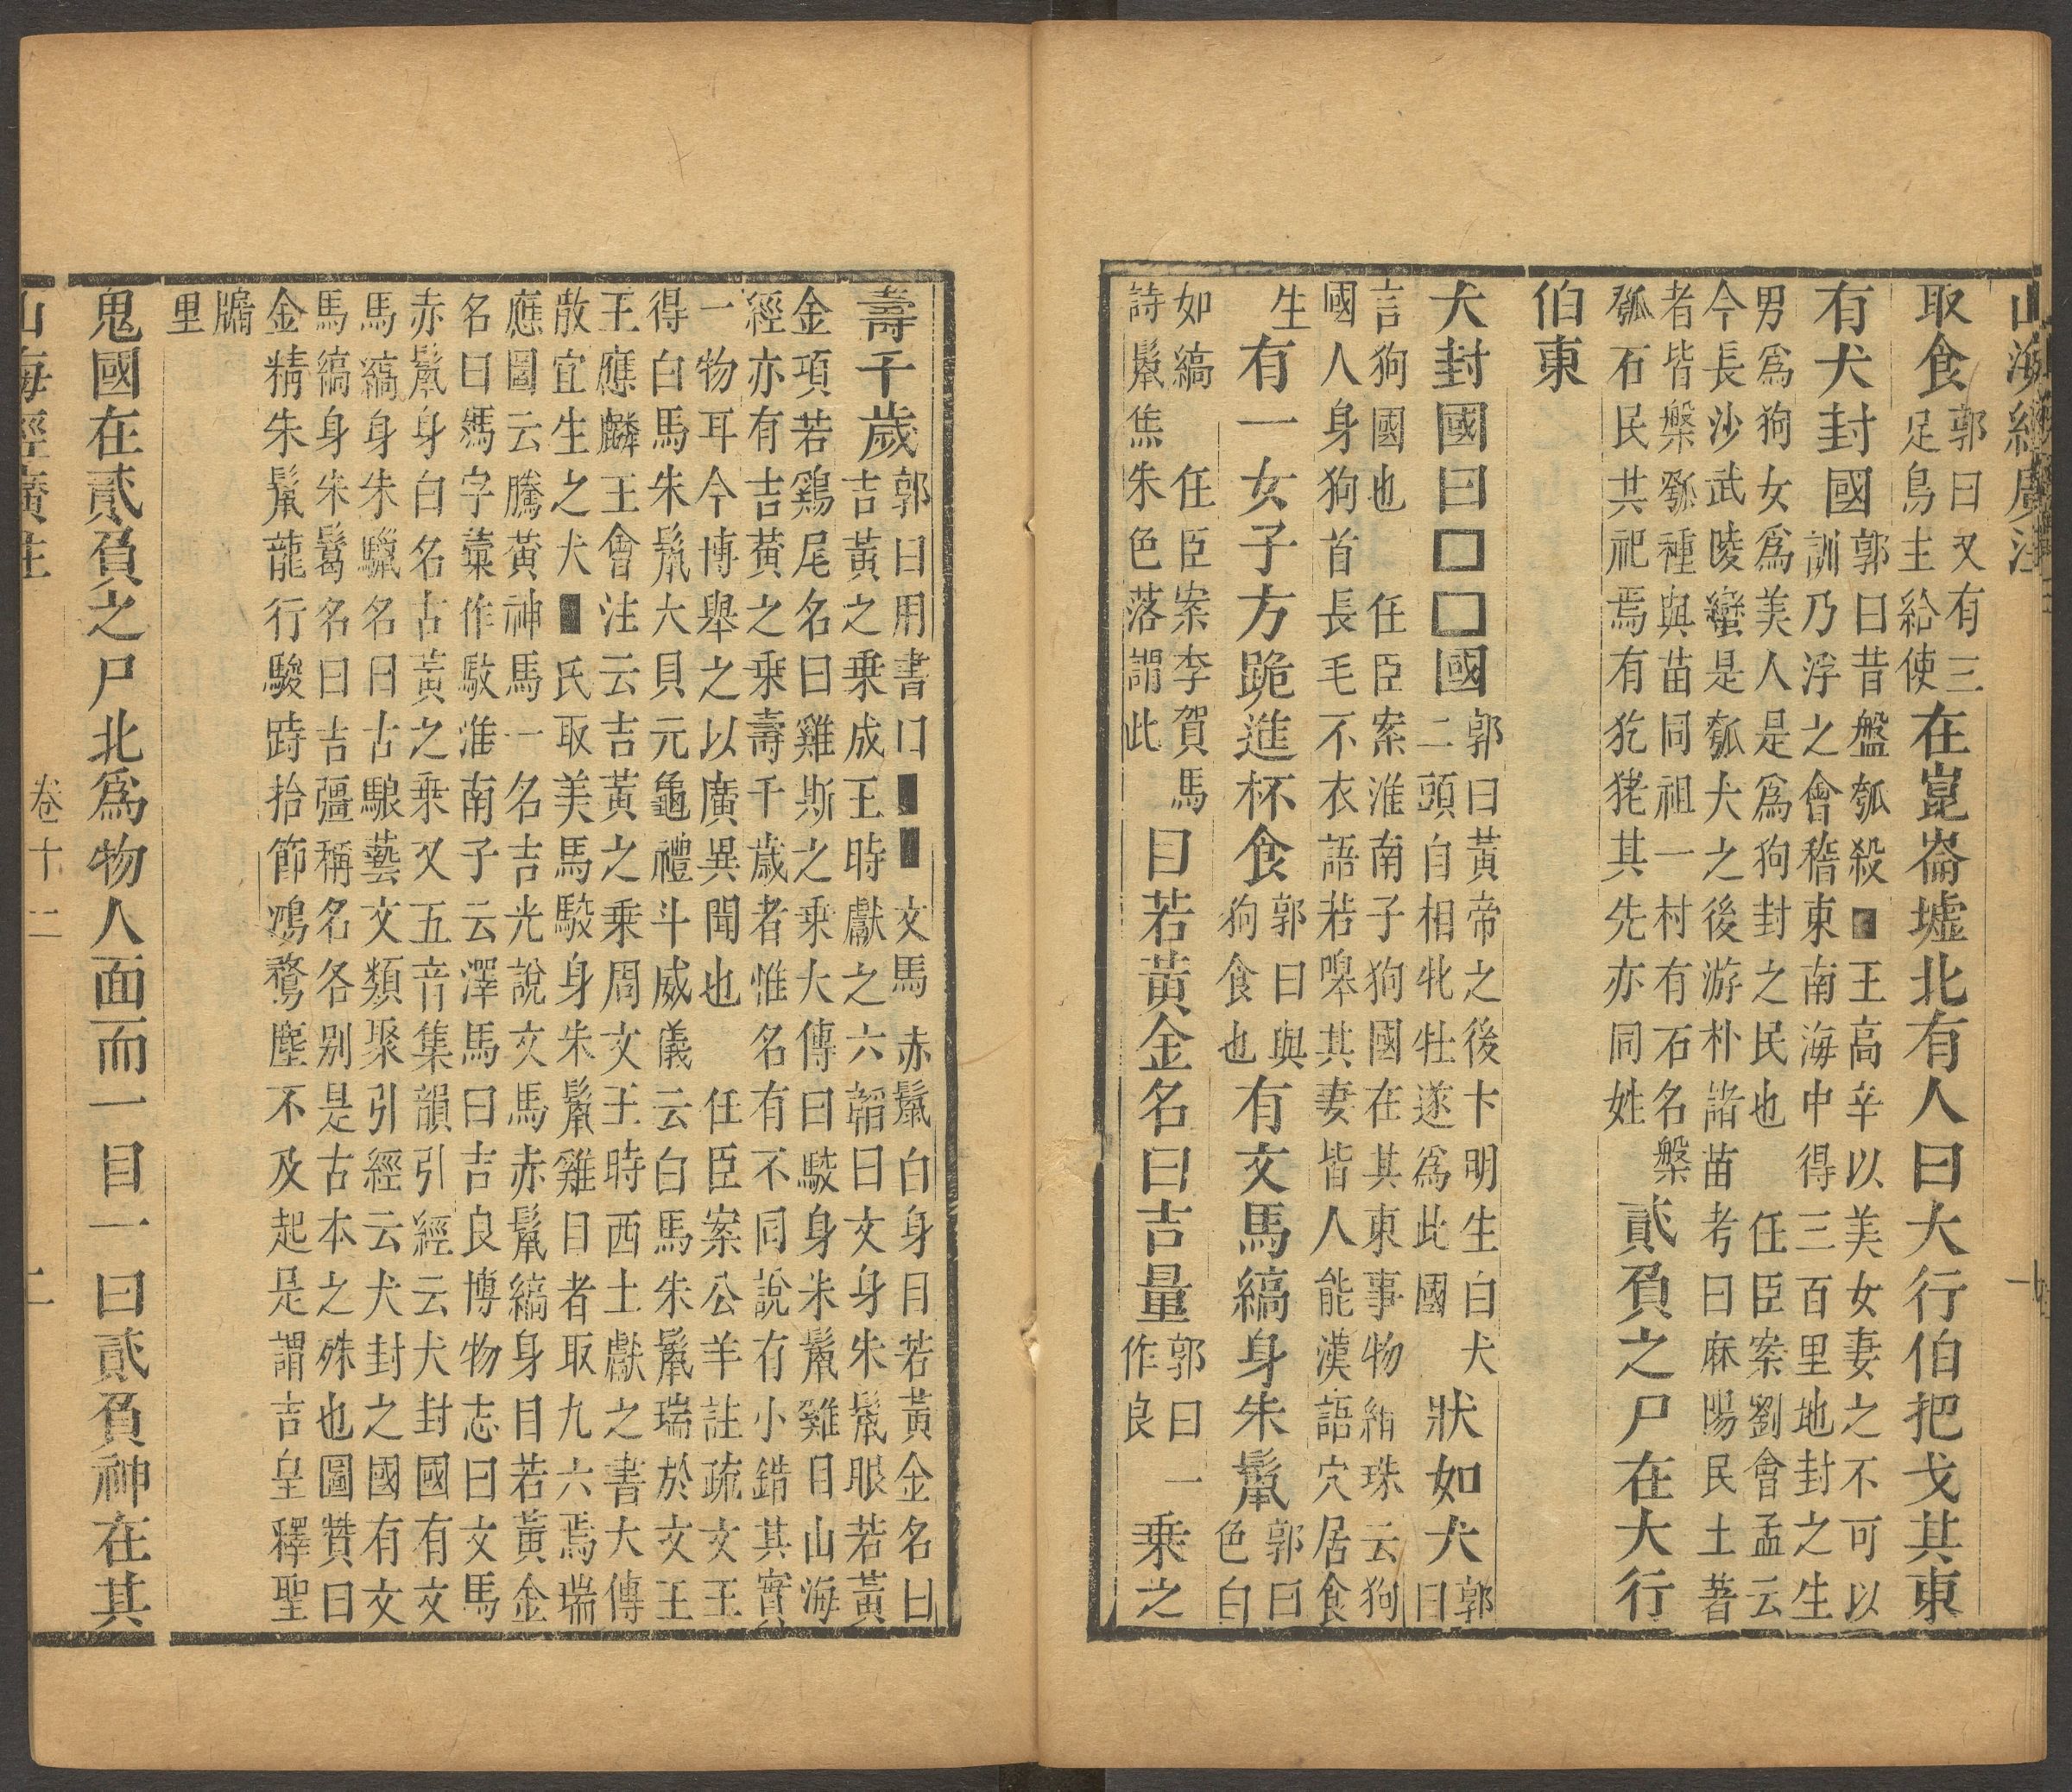 山海經廣注
一
取食
郭曰又有三
足鳥主給使
在崑崙墟北有人曰大行伯把戈其東
有犬封國
郭曰昔盤瓠殺■王高辛以美女妻之不可以
訓乃浮之會稽東南海中得三百里地封之生
男爲狗女爲美人是爲狗封之民也 任臣案劉會孟云
今長沙武陵蠻是瓠犬之後游朴諸苗考曰麻陽民土著
者皆槃瓠種與苗同祖一村有石名槃
瓠石民共祀焉有犵狫其先亦同姓
貳負之尸在大行
伯東
犬封國曰□□國
郭曰黃帝之後卞明生白犬
二頭自相牝牡遂爲此國
狀如犬
郭
曰
言狗國也 任臣案淮南子狗國在其東事物紺珠云狗
國人身狗首長毛不衣語若嘷其妻皆人能漢語穴居食
生
有一女子方跪進杯食
郭曰與
狗食也
有文馬縞身朱鬣
郭曰
色白
如縞 任臣案李賀馬
詩鬣焦朱色落謂此
目若黃金名曰吉量
郭曰一
作良
乘之
壽千歲
郭曰用書曰■■文馬赤鬣白身目若黃金名曰
吉黃之乗成王時獻之六韜曰文身朱鬣眼若黃
金項若鷄尾名曰雞斯之乗大傳曰駮身朱鬣雞目山海
經亦有吉黃之乗壽千歲者惟名有不同說有小錯其實
一物耳今博舉之以廣異聞也 任臣案公羊註疏文王
得白馬朱鬣大貝元龜禮斗威儀云白馬朱鬣瑞於文王
王應麟王會注云吉黃之乗周文王時西土獻之書大傳
散宜生之犬■氏取美馬駮身朱鬣雞目者取九六焉瑞
應圖云騰黃神馬一名吉光說文馬赤鬣縞身目若黃金
名曰字彙作駇淮南子云澤馬曰吉良博物志曰文馬
赤鬣身白名古黃之乗又五音集韻引經云犬封國有文
馬縞身朱名曰古藝文類聚引經云犬封之國有文
馬縞身朱髦名曰吉彊稱名各別是古本之殊也圖贊曰
金精朱鬣龍行駿跱拾節鴻鶩塵不及起是謂吉皇釋聖
牖
里
鬼國在貳負之尸北爲物人面而一目一曰貳負神在其
山海經廣注
卷十二
二